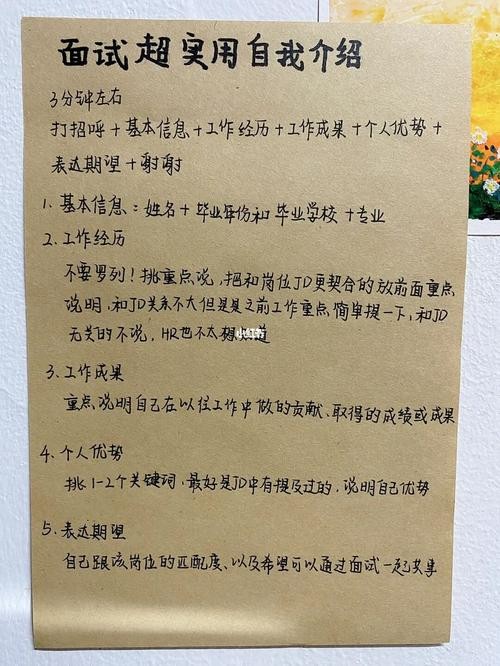 面试超实用自我介绍
3分钟左右
打招呼+基本信息+工作经历+工作成果+个人优势+
表达期望+谢谢
1. 基本信息：姓名+毕业年份和毕业学校+专业
2. 工作经历
不要罗列！挑重点说，把和岗位JD更契合的放前面重点
说明，和JD关系不大但是是之前工作重点简单提一下，和JD
无关的不说，HR也不太想知道
小红书
3. 工作成果
重点说明自己在以往工作中做的贡献、取得的成绩或成果
4. 个人优势
挑1-2个关键词，最好是JD中有提及过的，说明自己优势
5. 表达期望
自己跟该岗位的匹配度、以及希望可以通过面试一起共事